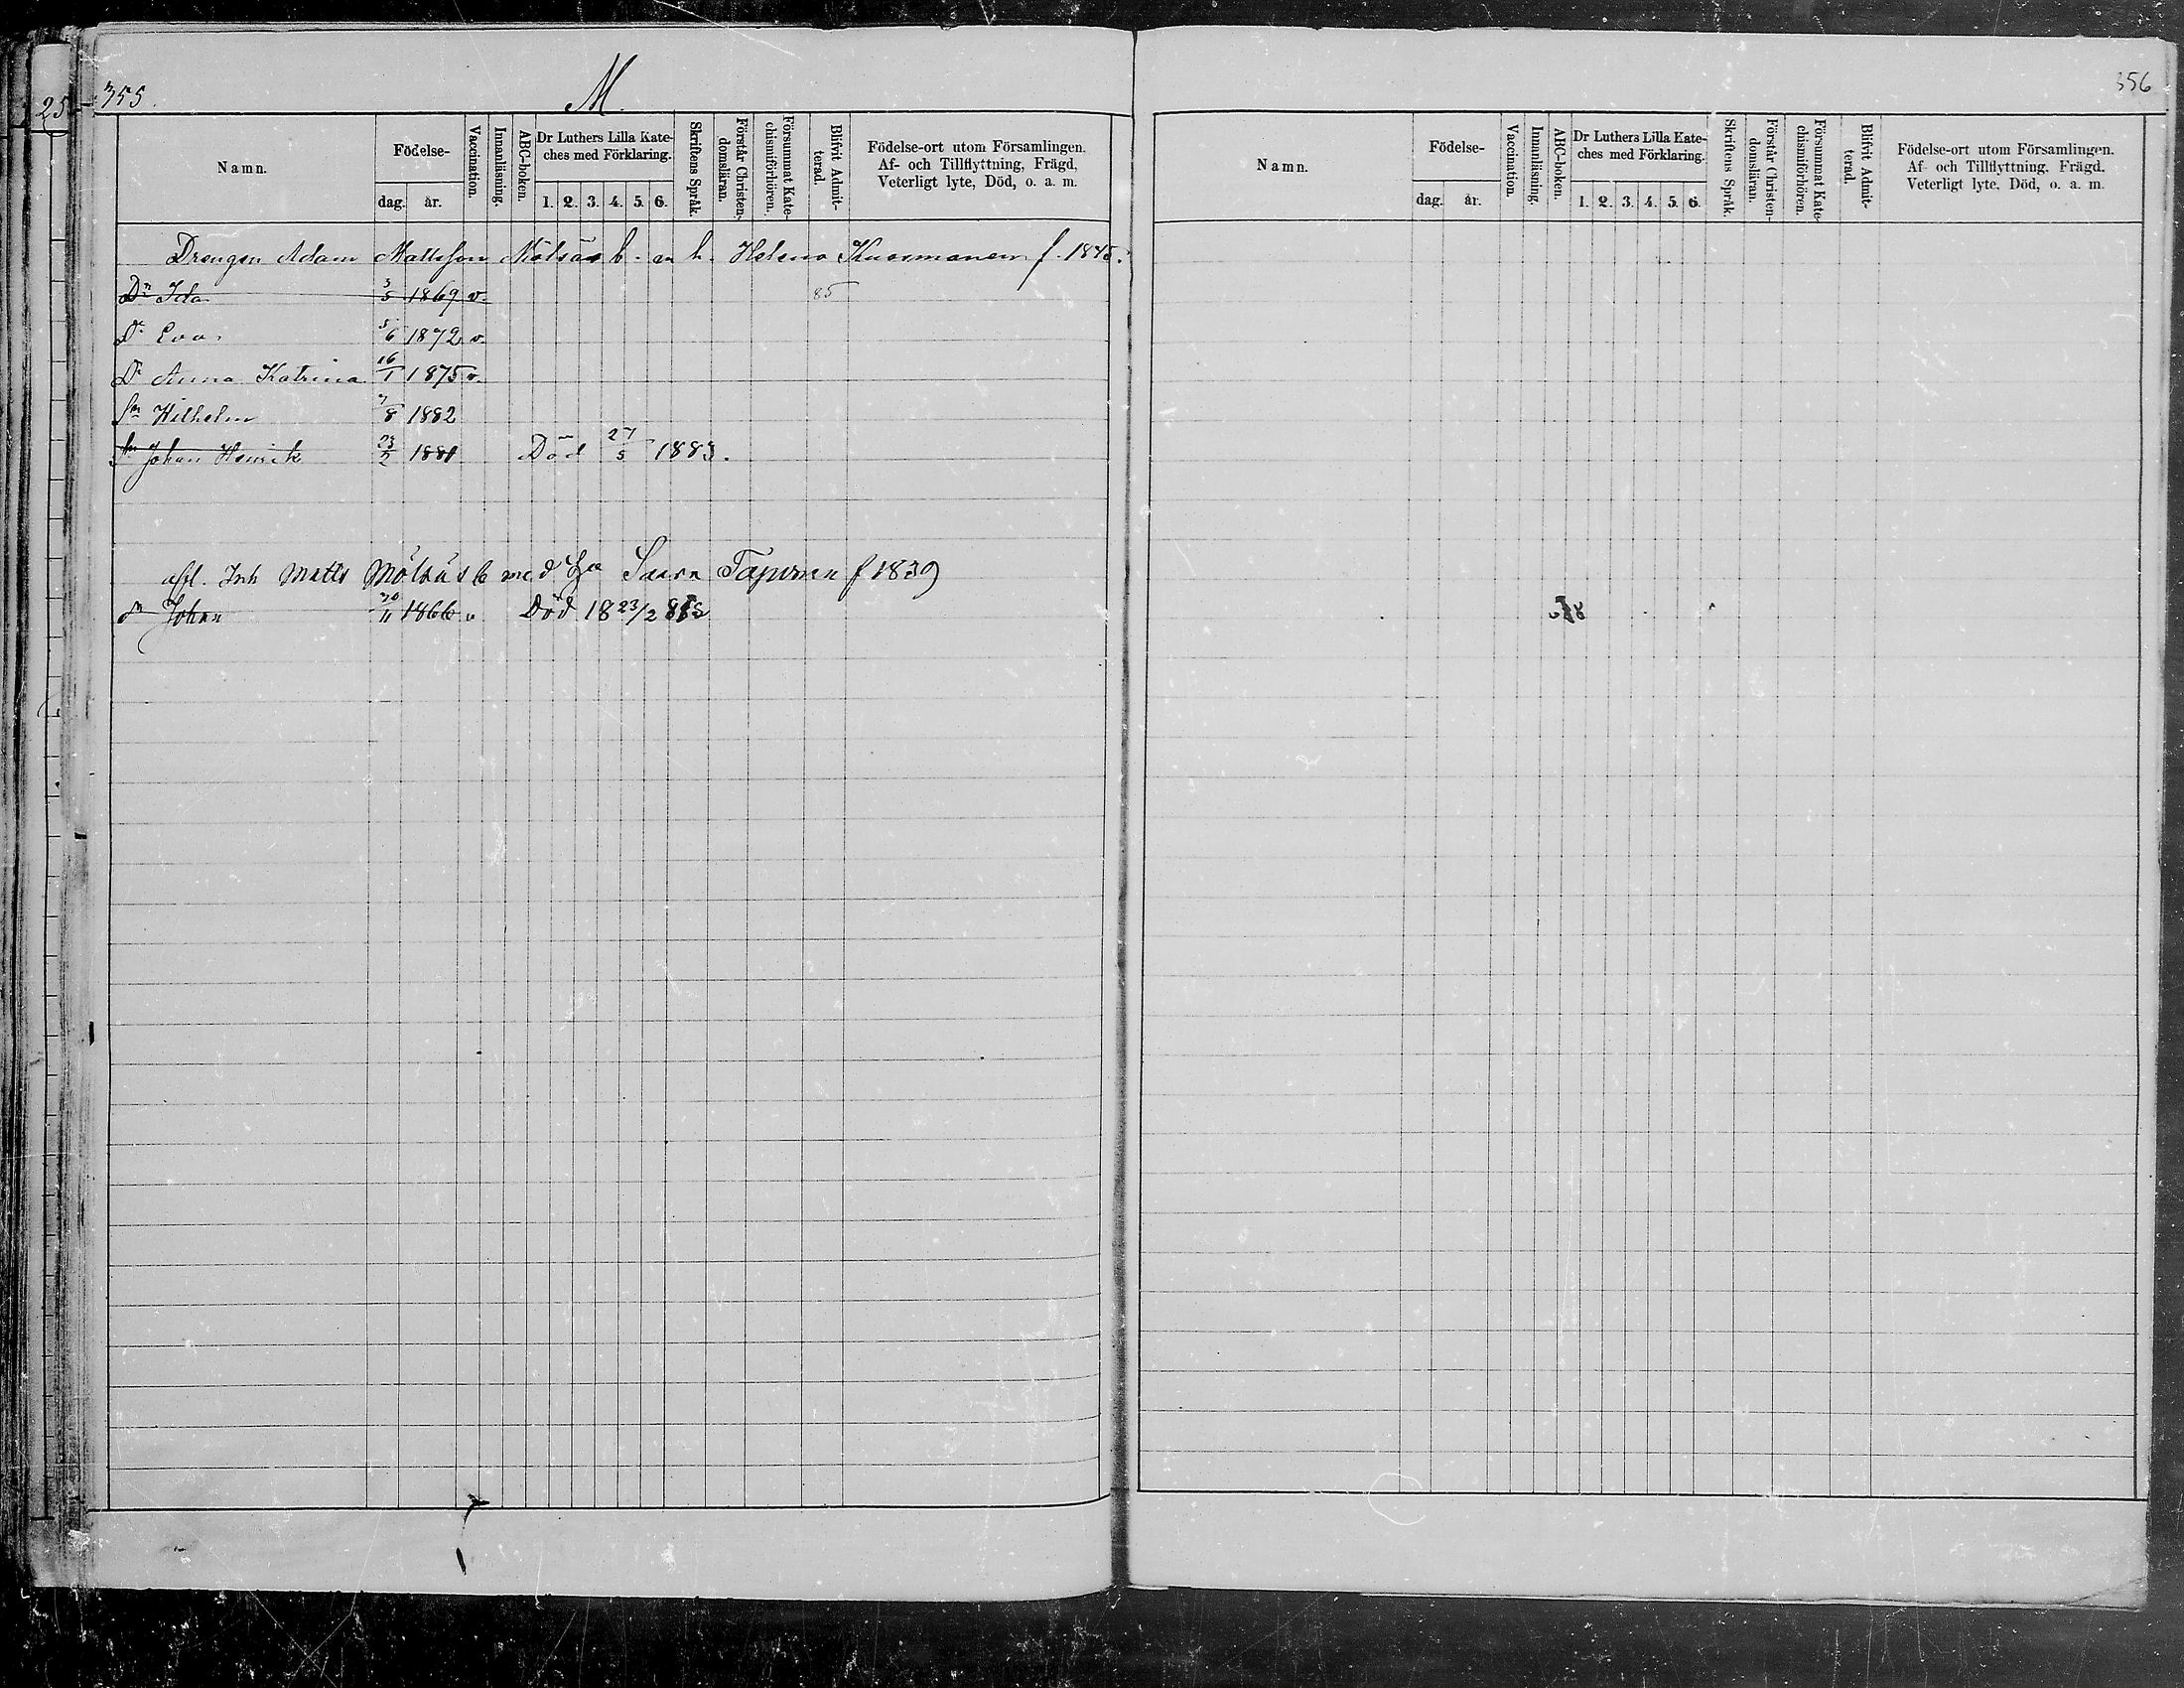 25
355.
M.
Namn.
Födelse-
dag.
år.
Vaccination.
Innanläsning.
ABC-boken.
Dr Luthers Lilla Kate-
ches med Förklaring.
1. 2. 3. 4. 5. 6.
Skriftens Språk.
Förstår Christen-
domsläran.
Försummat Kate-
chismiförhören.
Blifvit Admit-
terad.
Födelse-ort utom Församlingen.
Af- och Tillflyttning, Frägd,
Veterligt lyte, Död, o. a. m.
Drengen Adam Mattsson Mölsäs b. a. h. Helena Kuosmanen f. 1845.
Dr Ida 3/5 1869 v. 85
Dr Eva 5/6 1872 v.
Dr Anna Katrina 16/1 1875 v.
Sn Wilhelm 7/8 1882
Sn Johan Henrik 23/2 1881 Död 27/5 1883.
afl. Inh Matts Mölsäs b med Saara f 1839
Sn Johan 20/11 1866 v Död 18 23/2
356
Namn.
Födelse-
dag.
år.
Vaccination.
Innanläsning.
ABC-boken.
Dr Luthers Lilla Kate-
ches med Förklaring.
1. 2. 3. 4. 5. 6.
Skriftens Språk.
Förstår Christen-
domsläran.
Försummat Kate-
chismiförhören.
Blifvit Admit-
terad.
Födelse-ort utom Församlingen.
Af- och Tillflyttning, Frägd,
Veterligt lyte, Död, o. a. m.